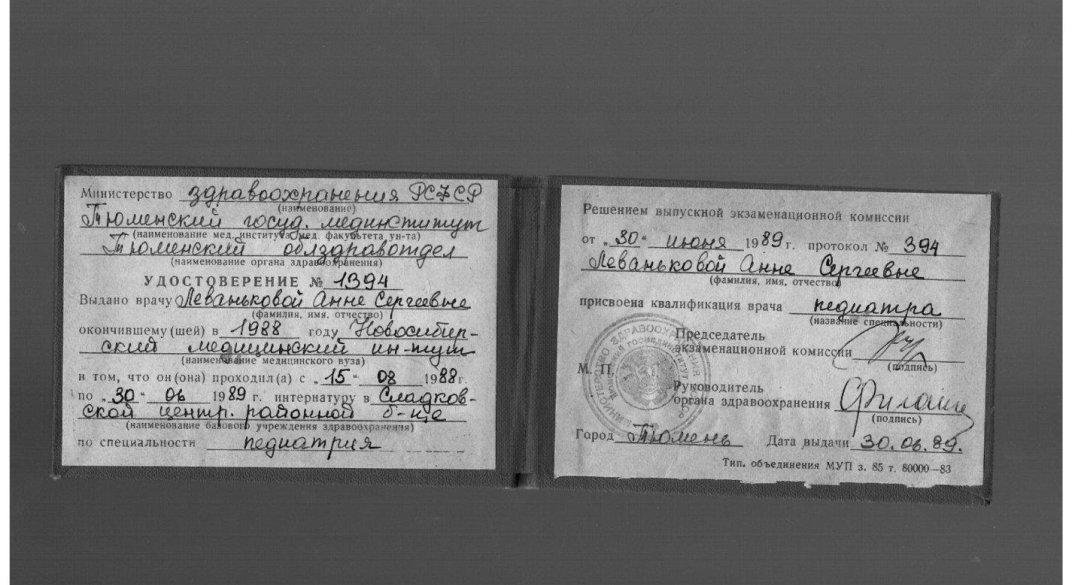 Министерство здравоохранения РСФСР
(наименование)
Тюменский госуд. мединститут
(наименование мед. института, мед. факультета ун-та)
Тюменский облздравотдел
(наименование органа здравоохранения)
УДОСТОВЕРЕНИЕ № 1394
Выдано врачу Леваньковой Анне Сергеевне
(фамилия, имя, отчество)
окончившему(шей) в 1988 году Новосибир-
ский медицинский ин-тут
(наименование медицинского вуза)
в том, что он(она) проходил(а) с „15" 08 1988 г.
по „30" 06 1989 г. интернатуру в Сладков-
ской центр. районной б-це
(наименование базового учреждения здравоохранения)
по специальности педиатрия
Решением выпускной экзаменационной комиссии
от „30" июня 1989 г. протокол № 394
Леваньковой Анне Сергеевне
(фамилия, имя, отчество)
присвоена квалификация врача педиатра
(название специальности)
Председатель
экзаменационной комиссии
(подпись)
М. П.
Руководитель
органа здравоохранения
(подпись)
Город Тюмень Дата выдачи 30.06.89.
Тип. объединения МУП з. 85 т. 80000—83